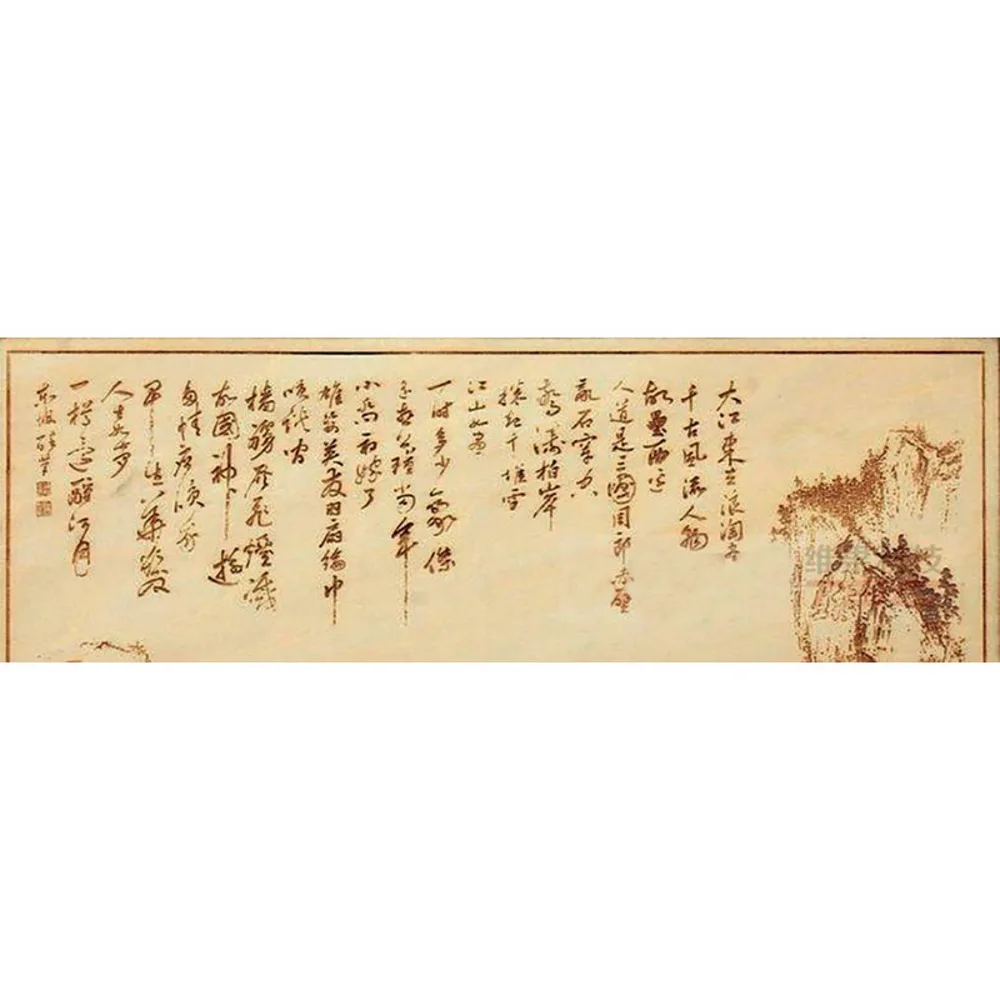 大江東去浪淘盡
千古風流人物
故壘西邊
人道是三國周郎赤壁
亂石穿空
驚濤拍岸
捲起千堆雪
江山如畫
一時多少豪傑
遙想公瑾當年
小喬初嫁了
雄姿英發羽扇綸巾
咲談間
檣艣灰飛煙滅
故國神遊
多情應咲我
早生華髮
人生如夢
一樽還酹江月
東坡醉筆